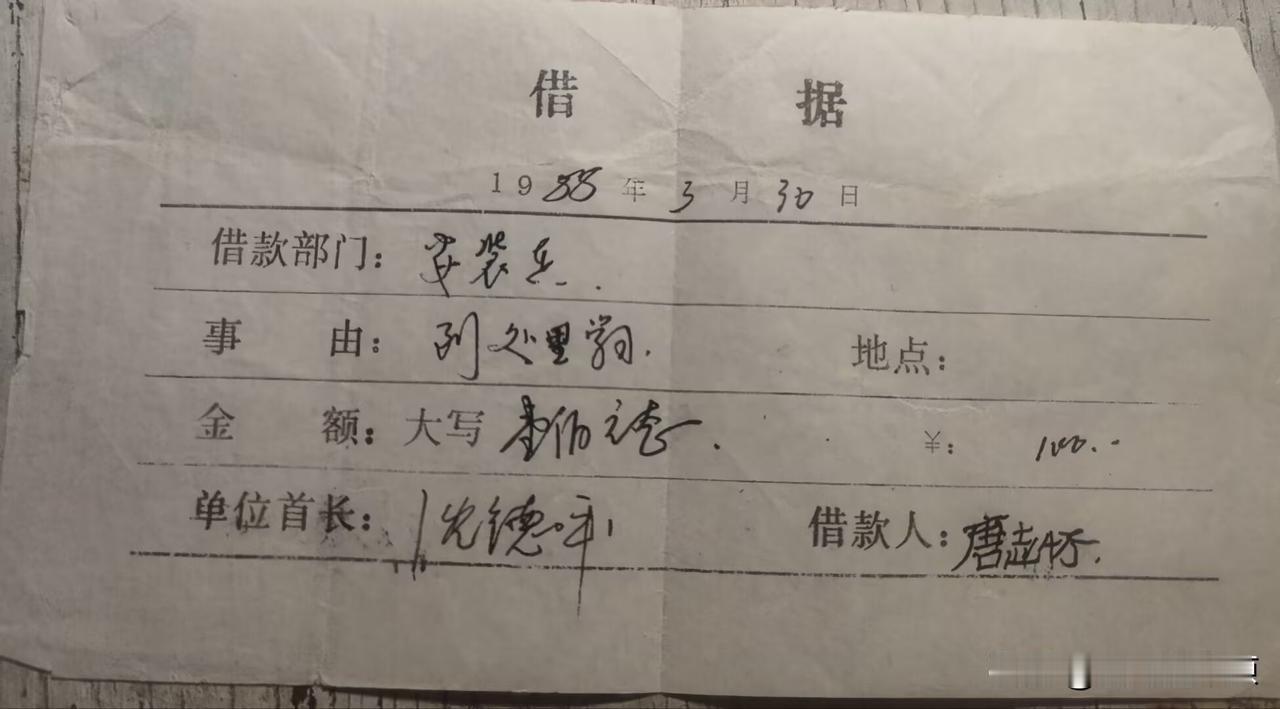 借据
1988年3月30日
借款部门：安装兵.
事由：到处里 地点：
金额：大写壹佰元整. ¥：100.-
单位首长：沈德平
借款人：唐志怀.